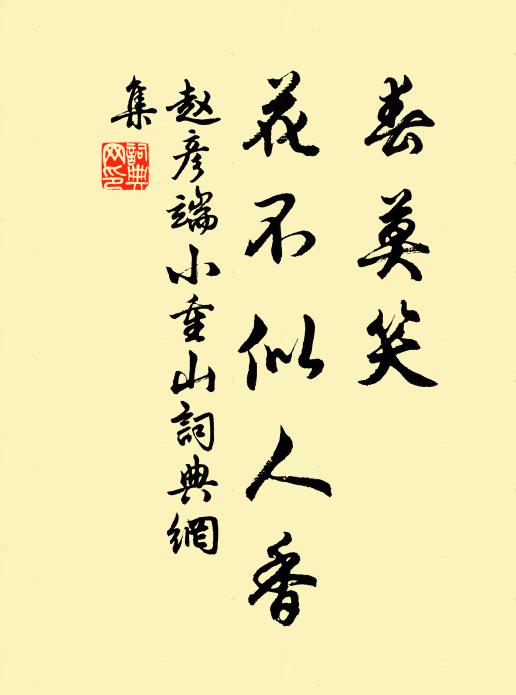 春莫笑
花不似人香
赵彦端小重山詞典網
集
詞典
网印